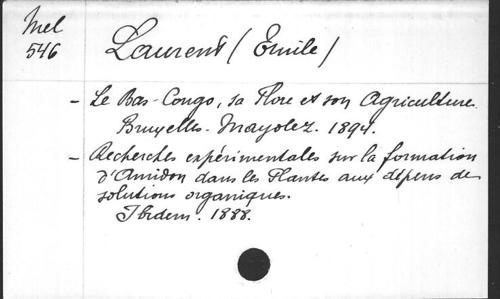 Mel
546
Laurent (Emile)
- Le Bas-Congo, sa Flore et son Agriculture.
Bruxelles - Mayolez. 1894.
- Recherches expérimentales sur la formation
d'Amidon dans les Plantes aux dépens de
solutions organiques.
Ibidem. 1888.